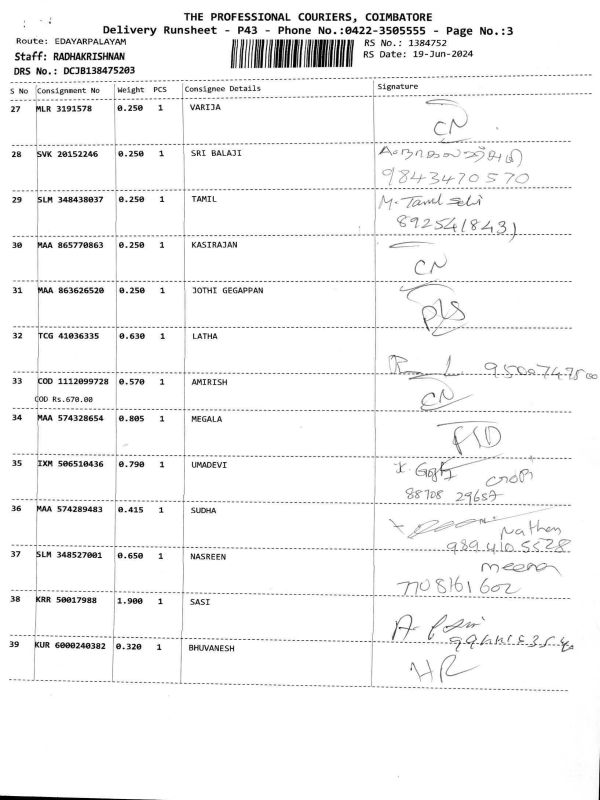 THE PROFESSIONAL COURIERS, COIMBATORE
Delivery Runsheet - P43 - Phone No.:0422-3505555 - Page No.:3
Route: EDAYARPALAYAM
RS No.: 1384752
Staff: RADHAKRISHNAN
RS Date: 19-Jun-2024
DRS No.: DCJB138475203
S No Consignment No Weight PCS Consignee Details Signature
27 MLR 3191578 0.250 1 VARIJA
CN
28 SVK 20152246 0.250 1 SRI BALAJI
9843470570
29 SLM 348438037 0.250 1 TAMIL M. Tamil Selvi
8925418431
30 MAA 865770863 0.250 1 KASIRAJAN
CN
31 MAA 863626520 0.250 1 JOTHI GEGAPPAN
PLS
32 TCG 41036335 0.630 1 LATHA
33 COD 1112099728 0.570 1 AMIRISH CN
COD Rs.670.00
34 MAA 574328654 0.805 1 MEGALA
35 IXM 506510436 0.790 1 UMADEVI
88708 29657
36 MAA 574289483 0.415 1 SUDHA
Nathan
9894105528
37 SLM 348527001 0.650 1 NASREEN meena
7708161602
38 KRR 50017988 1.900 1 SASI
39 KUR 6000240382 0.320 1 BHUVANESH
HR